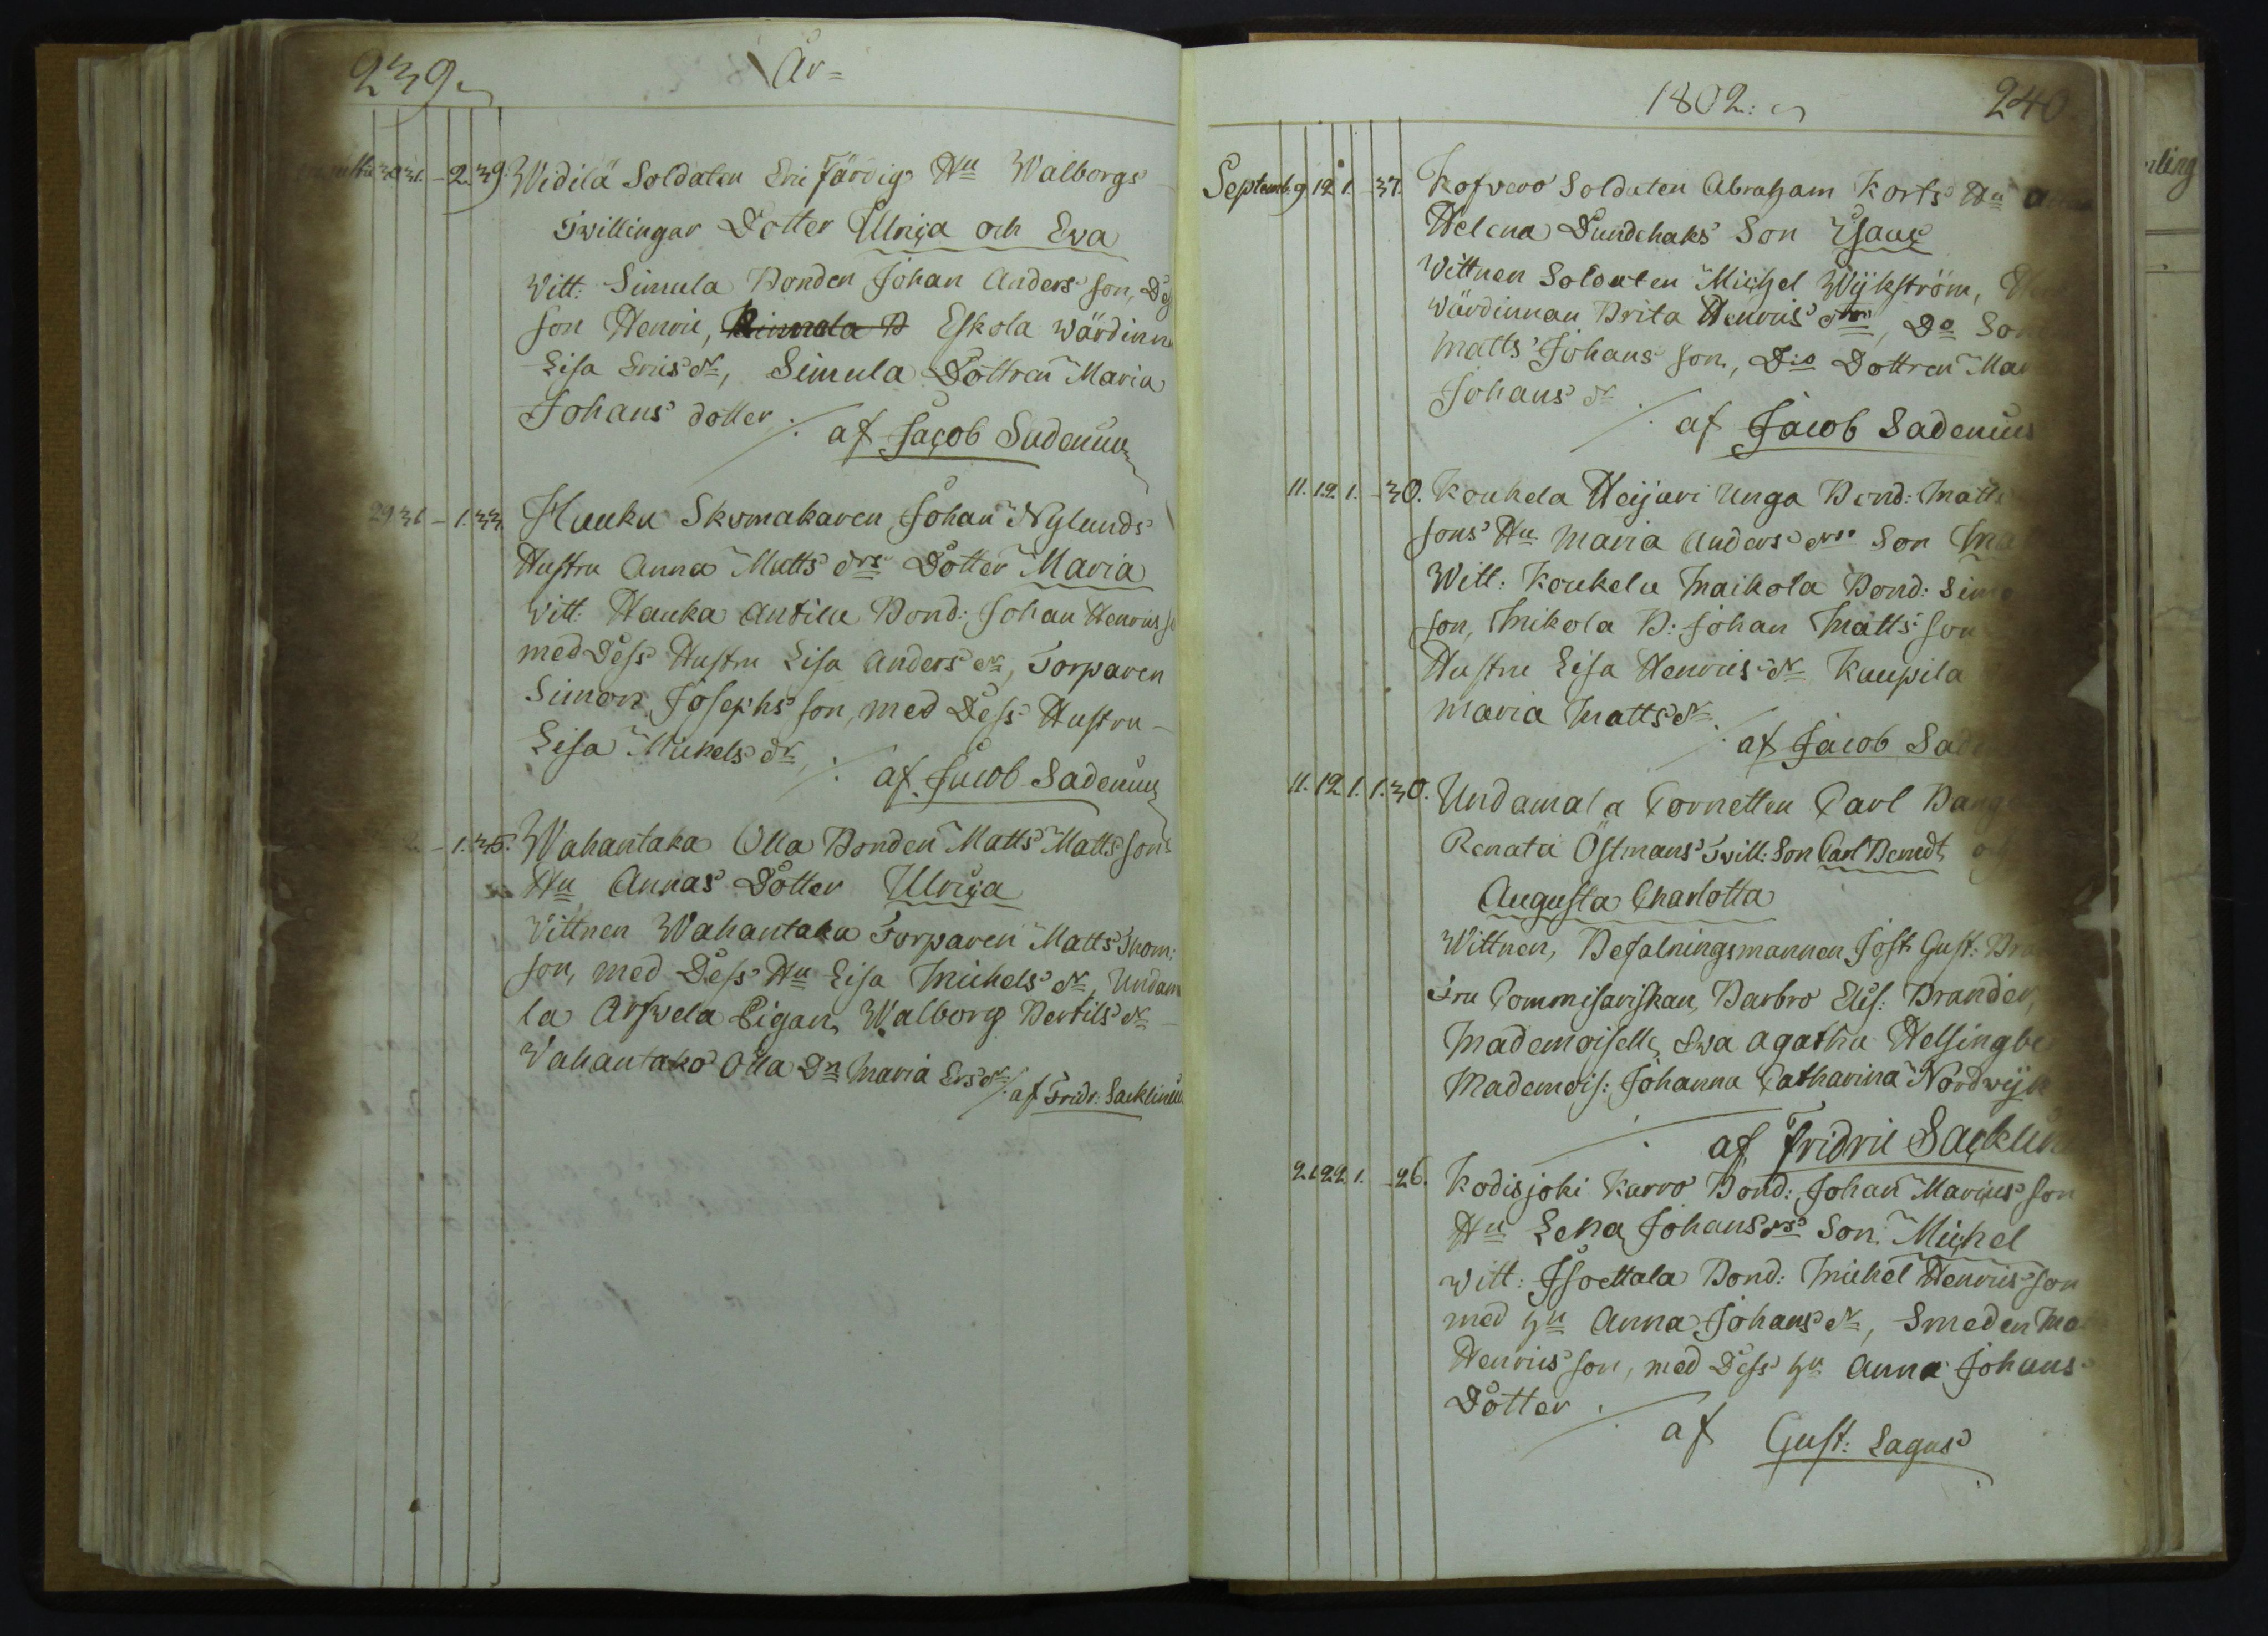 239.
År=
30 31. - 2. 39. Widilä Soldaten Eric Färdigs Hu Walborgs
Twillingar Dotter Ulrica och Eva
Vitt: Simula Bonden Johan Anders son,
son Henric, Eskola wärdinn
Lisa Ericsdr, Simula Dottren Maria
Johans dotter ./. af Jacob Sadenius
29 31 - 1. 33. Hauku Skomakaren Johan Nylunds
Hustru Anna Matts drs Dotter Maria
Vitt: Hauka Antila Bond: Johan Henrics
med Dess Hustru Lisa Anders dr, Torparen
Simon Josephs son, med Dess Hustru
Lisa Michels dr, ./. af Jacob Sadenius
- 1. 35. Wahantaka Olla Bonden Matts Matts sons
Hu Annas Dotter Ulrica
Vittnen Wahantaka Torparen Matts Thom:
son, med Dess Hu Lisa Michels dr, Undam
la Arfwela Pigan Walborg Bertils dr
Wahantako Olla Dn Maria Ersdr ./. af Fridr: Sacklinius
1802.
240
Septemb. 9. 12 1. - 37. Kofvero Soldaten Abraham Korts Hu
Helena Dundehaks Son Isaac
Vittnen Soldaten Michel Wijkström,
wärdinnan Brita Henrics dtr, Do Son
Matts Johans son, D:o Dottren Mar
Johans dr ./. af Jacob Sadenius
11. 12 1. - 30. Koukela Heijari Unga Bond: Matts
sons Hu Maria Anders drs Son Ma
Witt: Koukela Maikola Bond: Simo
son, Mikola B: Johan Matts son
Hustru Lisa Henrics dr Kaupila
Maria Matts dr ./. af Jacob Sade
11. 12 1. 1. 30. Undamala Cornetten Carl Bang
Renata Östmans Twill: Son Carl Berndt
Augusta Charlotta
Wittnen, Befalningsmannen Jost Gust: Bra
Fru Commisariskan, Barbro Elis: Brander,
Mademoiselle Eva Agatha Helsingbe
Mademois: Johanna Catharina Nordwijk
./. af Fridric Sacklin
21 22 1. - 26. Kodisjoki Karvo Bond: Johan Marcus son
Hu Lena Johans drs Son Michel
Witt: Isoettala Bond: Michel Henrics son
med hu Anna Johans dr, Smeden Ma
Henrics son, med Dess hu Anna Johans
Dotter ./. af Gust: Lagus
rling